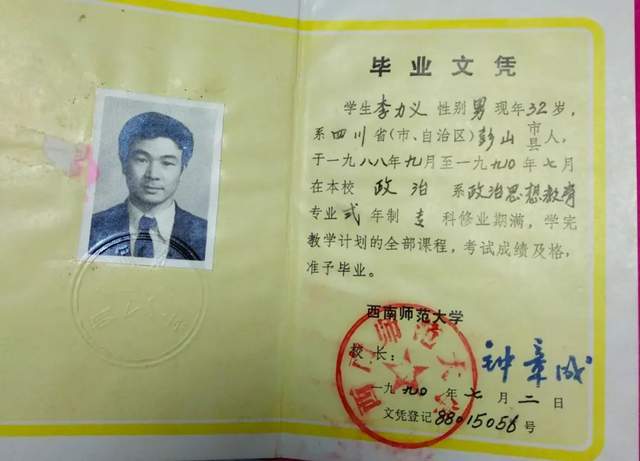 毕业文凭
学生李力义 性别男现年32岁,
系四川省(市、自治区)彭山市县人,
于一九八八年九月至一九九〇年七月
在本校 政治 系政治思想教育
专业弍年制 专 科修业期满，学完
教学计划的全部课程，考试成绩及格，
准予毕业。
西南师范大学
校长： 钟章成
一九九〇年七月二日
文凭登记88015056号